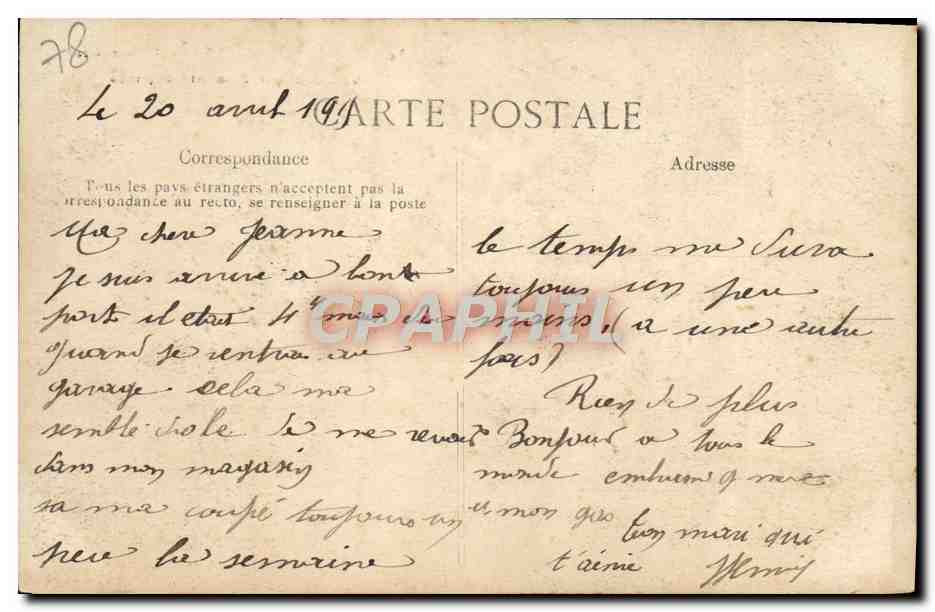 78
Le 20 avril 191
CARTE POSTALE
Correspondance
Tous les pays étrangers n'acceptent pas la
orrespondance au recto, se renseigner à la poste
Adresse
Ma chere Jeanne
je suis arrive a bont
porte il etait 4
quand je rentrai au
garage cela ma
semblé drole de me revoir
dans mon magasin
sa ma coupé toujours un
peu la semaine
le temps me dura
toujours un peu
moins, (a une autre
fois)
Rien de plus
Bonjour a tous le
monde
et mon gas
ton mari qui
t'aime
CPAPHIL